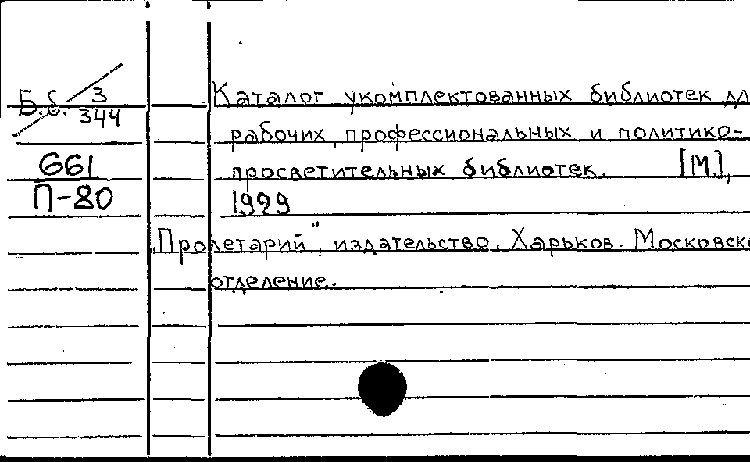 Б.б. 3/344
Каталог укомплектованных библиотек дл
рабочих, профессиональных и политико-
просветительных библиотек. [М.],
1929
661
П-80
„Пролетарий" издательство. Харьков. Московско
отделение.